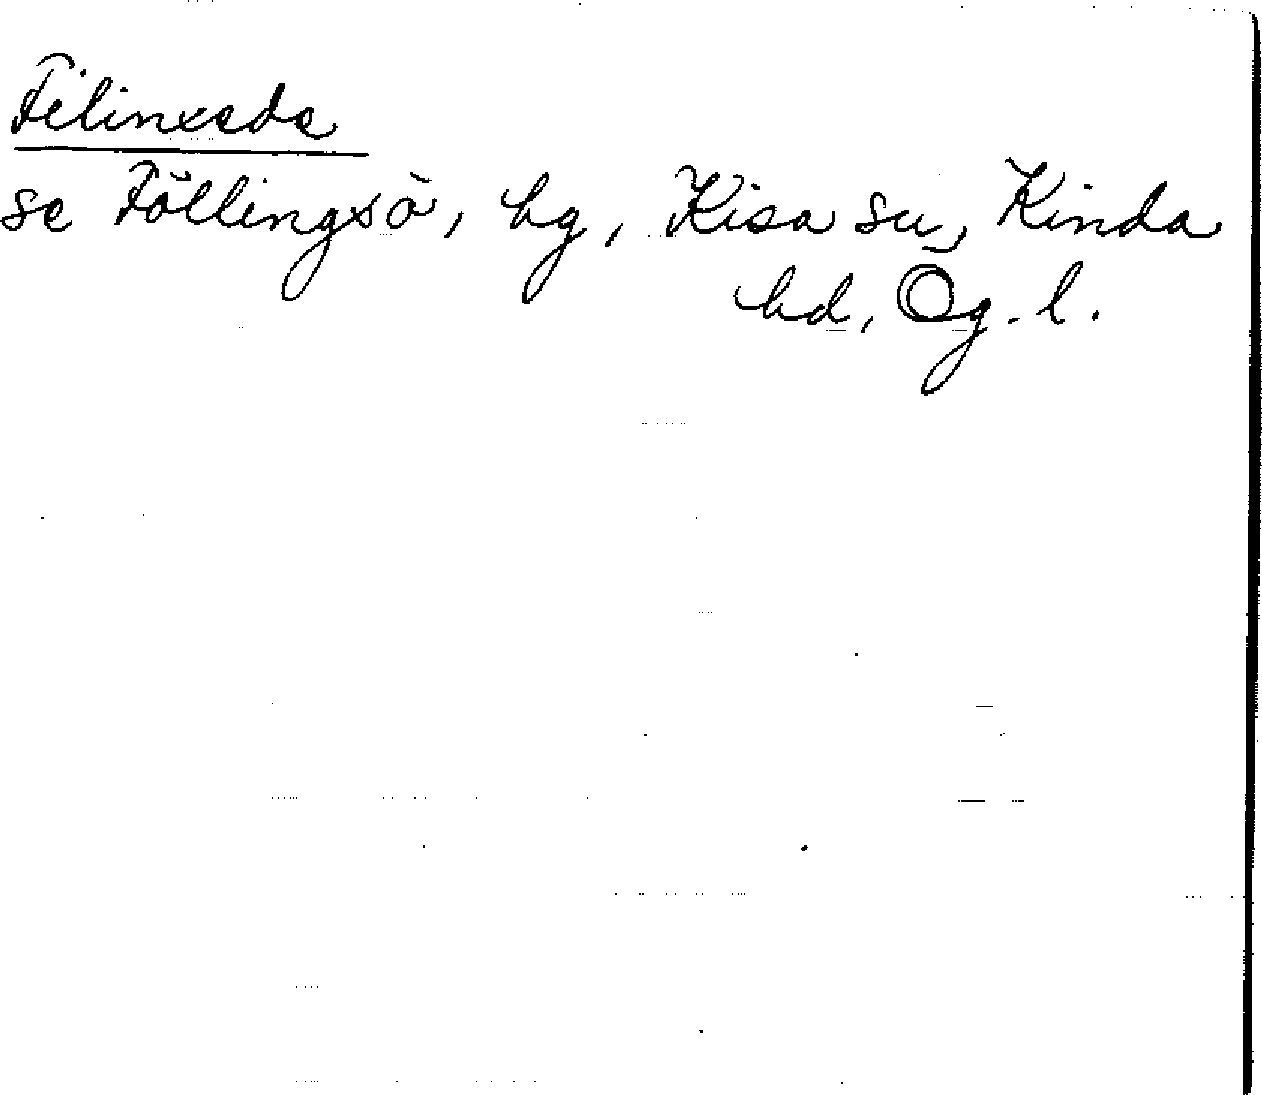 Filinxede
se Föllingsö, hg, Kisa su, Kinda
hd, Ög. l.